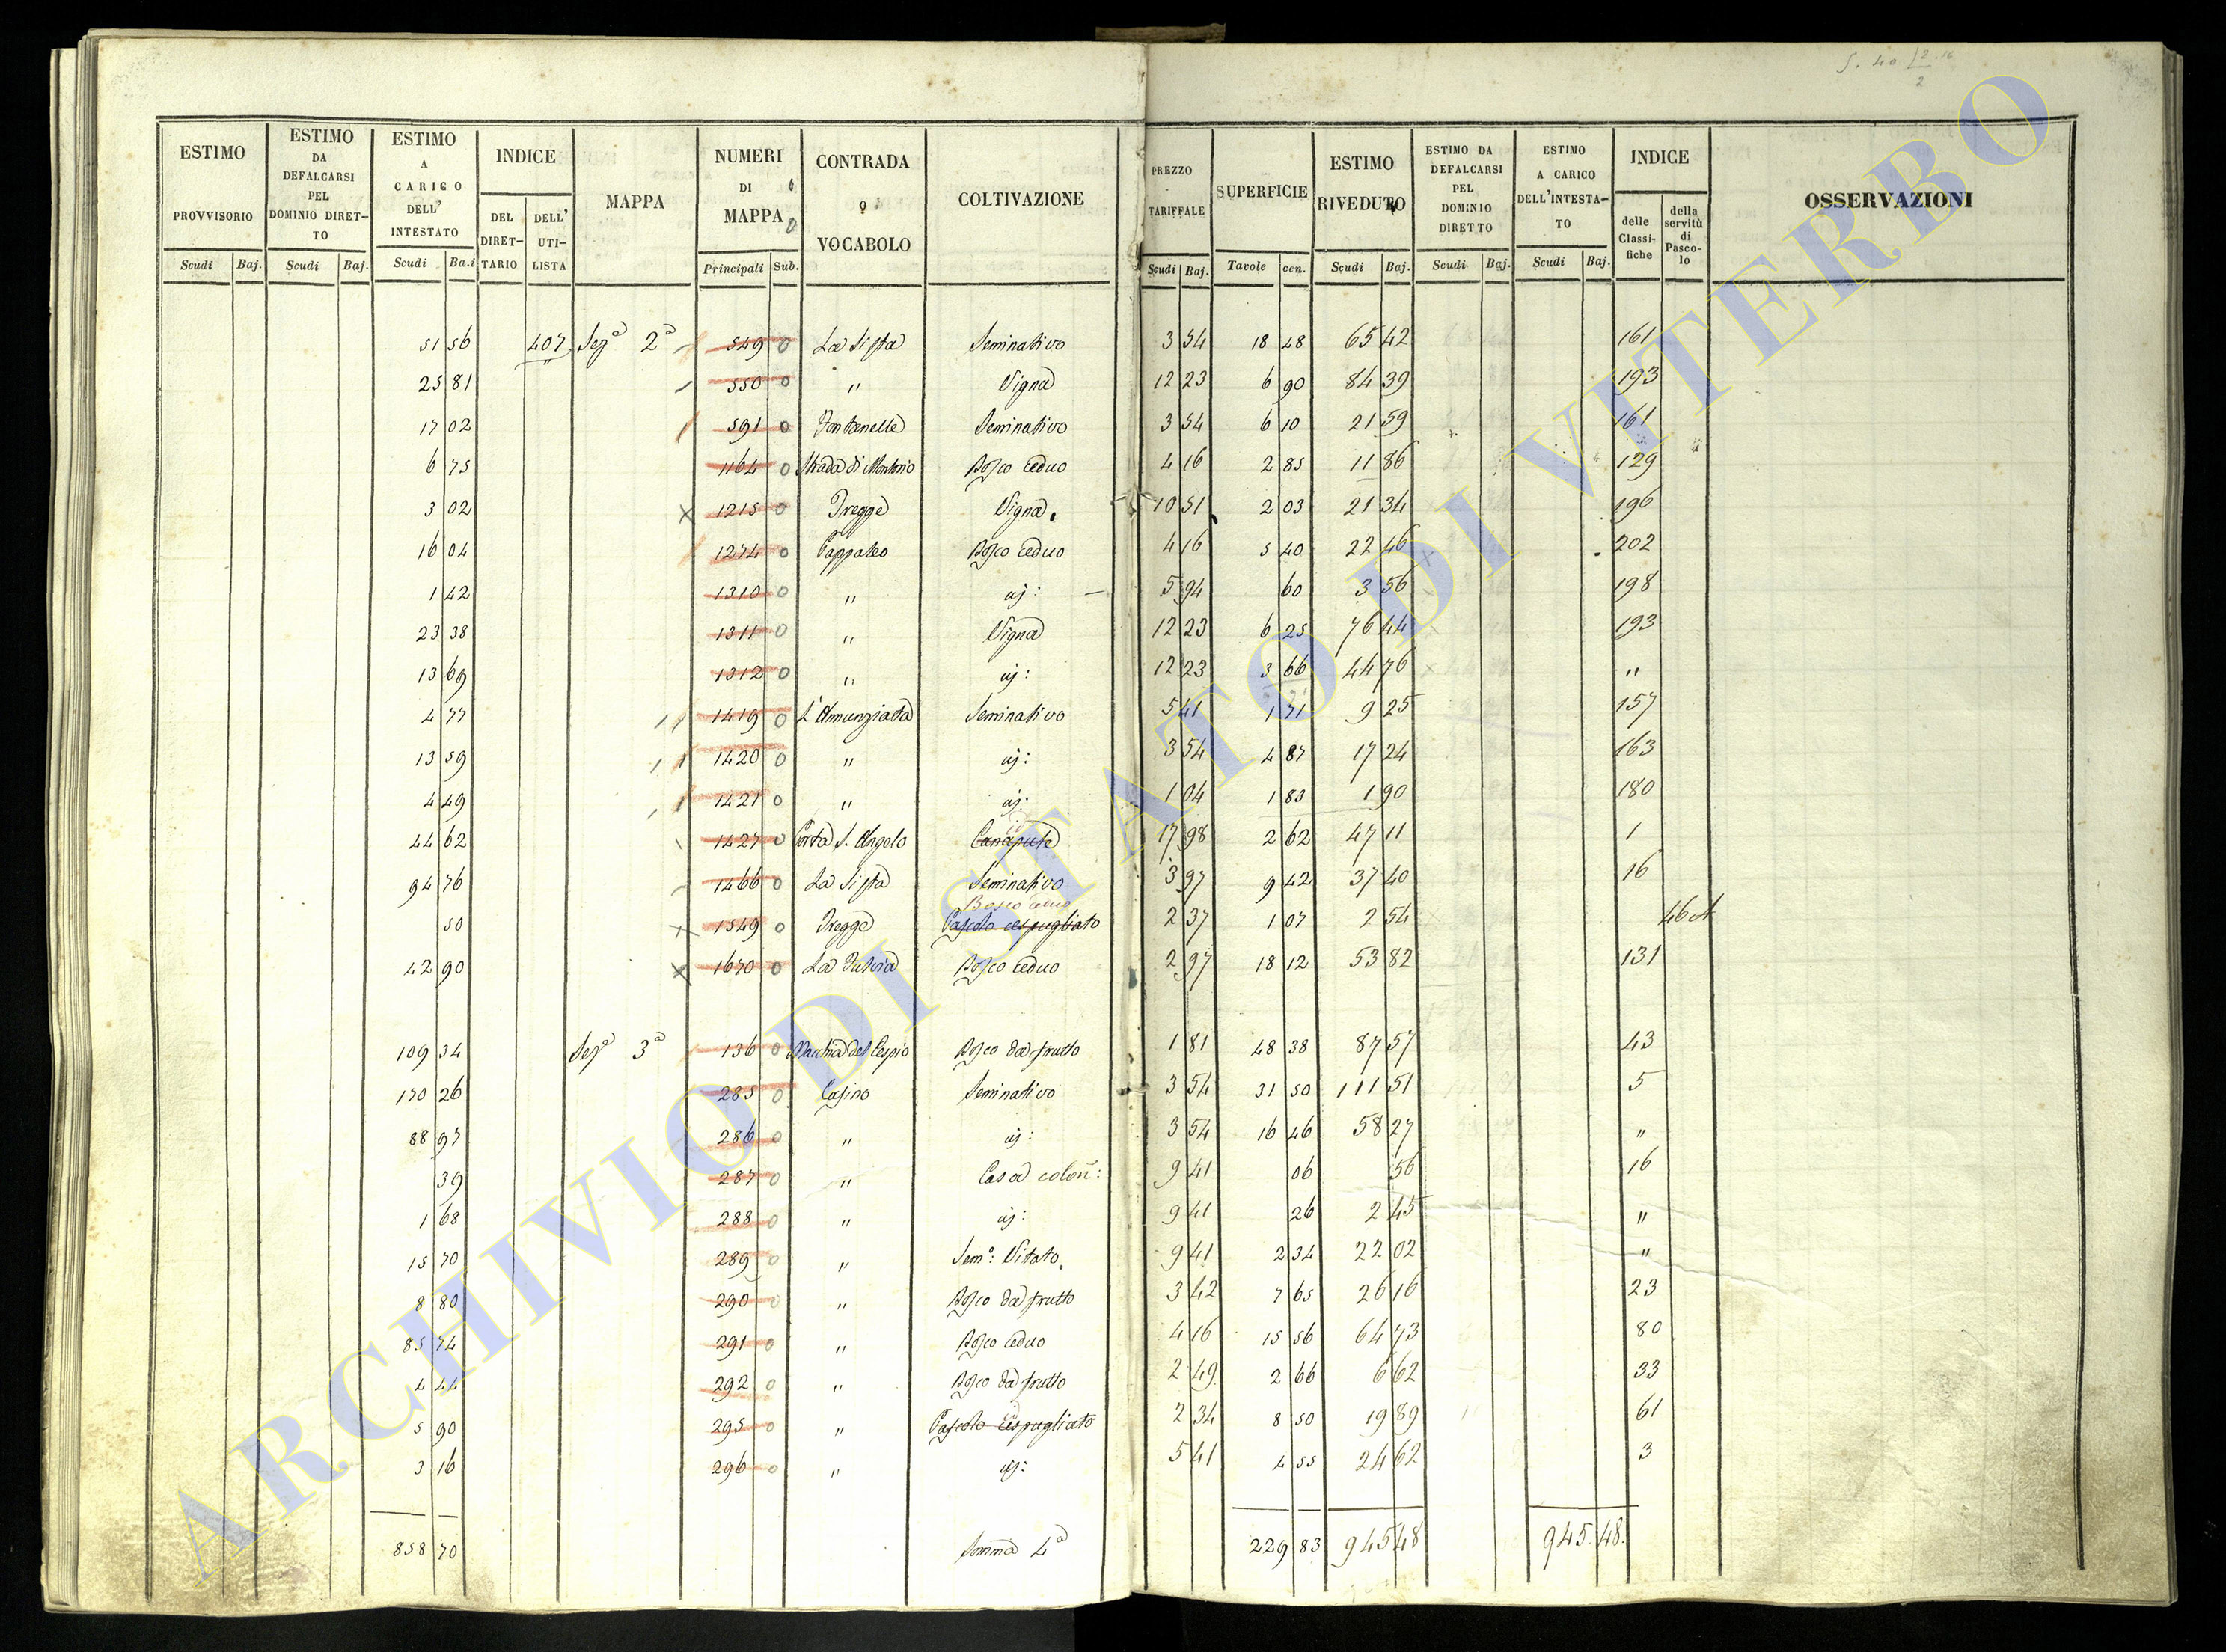 S. 40 | 2.16
2
ESTIMO PROVVISORIO | ESTIMO DA DEFALCARSI PEL DOMINIO DIRET-TO | ESTIMO A CARICO DELL' INTESTATO | INDICE | MAPPA | NUMERI DI MAPPA | CONTRADA o VOCABOLO | COLTIVAZIONE | PREZZO TARIFFALE | SUPERFICIE | ESTIMO RIVEDUTO | ESTIMO DA DEFALCARSI PEL DOMINIO DIRETTO | ESTIMO A CARICO DELL'INTESTA-TO | INDICE | OSSERVAZIONI
DEL DIRET-TARIO | DELL' UTI-LISTA | delle Classi-fiche | della servitù di Pasco-lo
Scudi | Baj. | Scudi | Baj. | Scudi | Ba.i | Principali | Sub. | Scudi | Baj. | Tavole | cen. | Scudi | Baj. | Scudi | Baj. | Scudi | Baj.
51 56 407 Sezª 2ª 549 0 La Sista Seminativo 3 54 18 48 65 42 161
25 81 550 0 " Vigna 12 23 6 90 84 39 193
17 02 591 0 Fontanelle Seminativo 3 54 6 10 21 59 161
6 75 1164 0 Strada di Montorio Bosco Ceduo 4 16 2 85 11 86 129
3 02 1215 0 Tregge Vigna 10 51 2 03 21 34 196
16 04 1274 0 Cappaleo Bosco Ceduo 4 16 5 40 22 46 202
1 42 1310 0 " id: 5 94 60 3 56 198
23 38 1311 0 " Vigna 12 23 6 25 76 44 193
13 69 1312 0 " id: 12 23 3 66 44 76 "
4 77 1419 0 L'Annunziata Seminativo 5 41 1 71 9 25 157
13 59 1420 0 " id: 3 54 4 87 17 24 163
4 49 1421 0 " id: 1 04 1 83 1 90 180
44 62 1427 0 Porta S. Angelo Canapule 17 98 2 62 47 11 1
94 76 1466 0 La Sista Seminativo 3 97 9 42 37 40 16
Bosco ceduo
50 1549 0 Tregge Pascolo cespugliato 2 37 1 07 2 54 46 A
42 90 1670 0 Bosco Ceduo 2 97 18 12 53 82 131
109 34 Sezª 3ª 136 0 Macchia del Cespio Bosco da frutto 1 81 48 38 87 57 43
170 26 285 0 Casino Seminativo 3 54 31 50 111 51 5
88 97 286 0 " id: 3 54 16 46 58 27 "
39 287 0 " Casa colon: 9 41 06 56 16
1 68 288 0 " id: 9 41 26 2 45 "
15 70 289 0 " Sem°: Vitato 9 41 2 34 22 02 "
8 80 290 0 " Bosco da frutto 3 42 7 65 26 16 23
85 74 291 0 " Bosco Ceduo 4 16 15 56 64 73 80
4 44 292 0 " Bosco da frutto 2 49 2 66 6 62 33
5 90 295 0 " Pascolo cespugliato 2 34 8 50 19 89 61
3 16 296 0 " id: 5 41 4 55 24 62 3
858 70 Somma 4ª 229 83 945 48 945.48.
ARCHIVIO DI STATO DI VITERBO